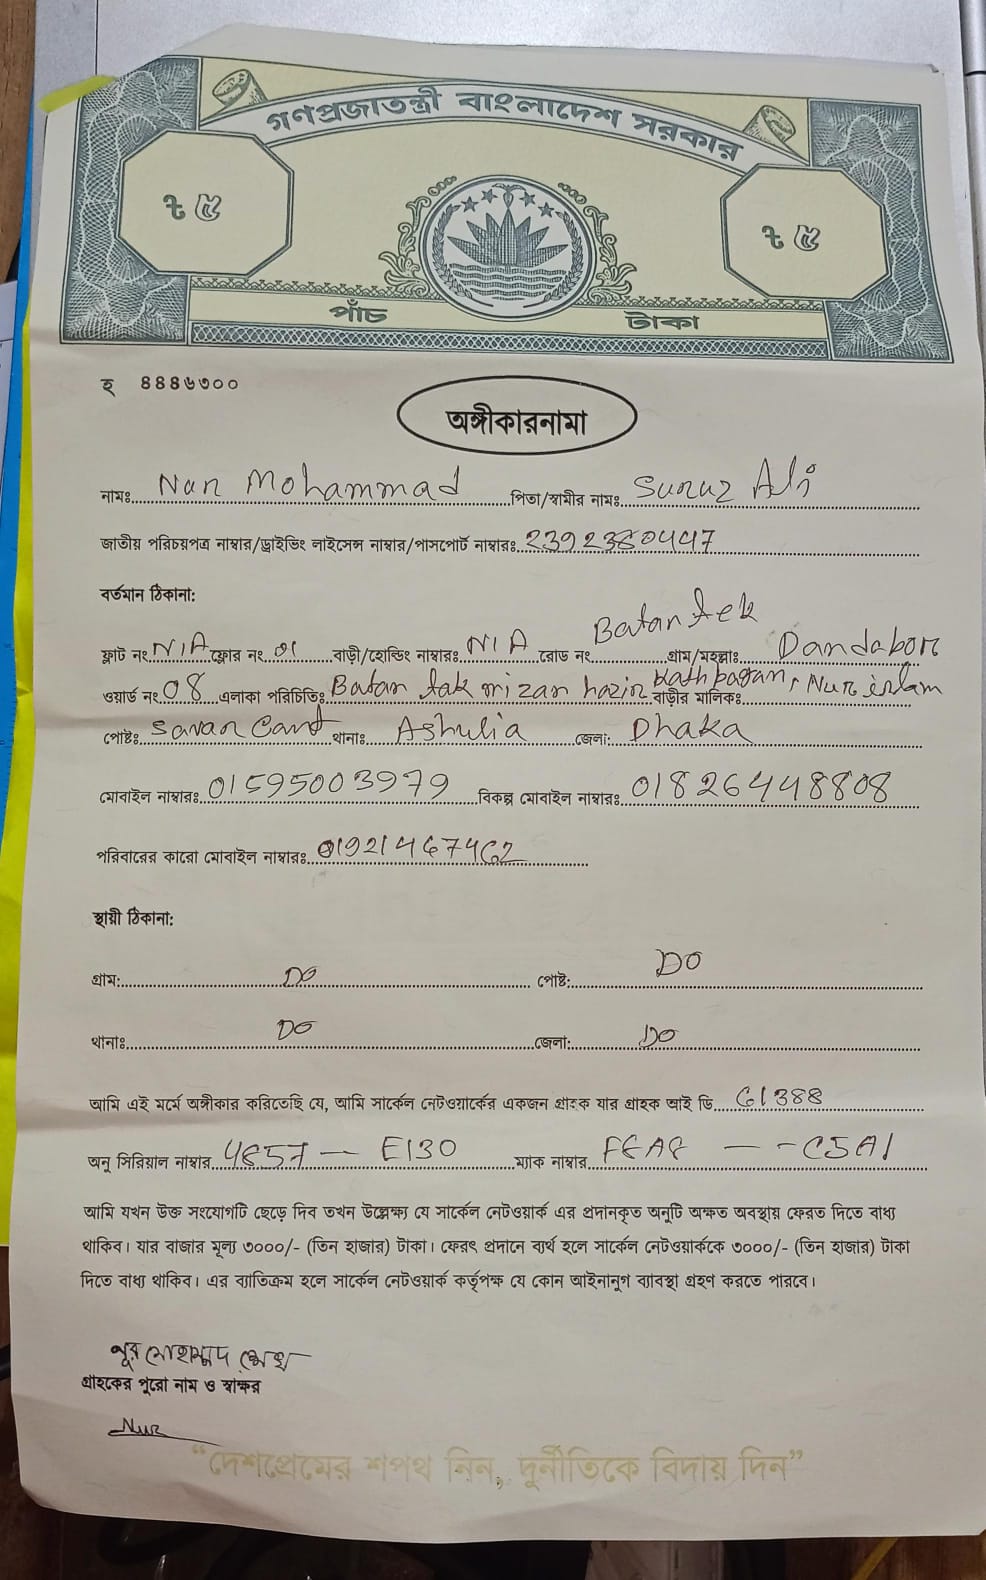 গণপ্রজাতন্ত্রী বাংলাদেশ সরকার
৳ ৫ ৳ ৫
পাঁচ টাকা
হ ৪৪৪৬৩০০
অঙ্গীকারনামা
নামঃ Nur Mohammad পিতা/স্বামীর নামঃ Suruz Ali
জাতীয় পরিচয়পত্র নাম্বার/ড্রাইভিং লাইসেন্স নাম্বার/পাসপোর্ট নাম্বারঃ 2392380447
বর্তমান ঠিকানা:
ফ্লাট নং N/A ফ্লোর নং 01 বাড়ী/হোল্ডিং নাম্বারঃ N/A রোড নং Batan tek গ্রাম/মহল্লাঃ Dandabor
ওয়ার্ড নং 08 এলাকা পরিচিতিঃ Batan tak mizan hazir kathbagan, বাড়ীর মালিকঃ Nur islam
পোষ্টঃ Savar Cant থানাঃ Ashulia জেলা: Dhaka
মোবাইল নাম্বারঃ 01595003979 বিকল্প মোবাইল নাম্বারঃ 01826448808
পরিবারের কারো মোবাইল নাম্বারঃ 01921467462
স্থায়ী ঠিকানা:
গ্রাম: DO পোষ্ট: DO
থানাঃ DO জেলা: DO
আমি এই মর্মে অঙ্গীকার করিতেছি যে, আমি সার্কেল নেটওয়ার্কের একজন গ্রাহক যার গ্রাহক আই ডি G1388
অনু সিরিয়াল নাম্বার 4857 — E130 ম্যাক নাম্বার — - C5A1
আমি যখন উক্ত সংযোগটি ছেড়ে দিব তখন উল্লেক্ষ্য যে সার্কেল নেটওয়ার্ক এর প্রদানকৃত অনুটি অক্ষত অবস্থায় ফেরত দিতে বাধ্য
থাকিব। যার বাজার মূল্য ৩০০০/- (তিন হাজার) টাকা। ফেরৎ প্রদানে ব্যর্থ হলে সার্কেল নেটওয়ার্ককে ৩০০০/- (তিন হাজার) টাকা
দিতে বাধ্য থাকিব। এর ব্যাতিক্রম হলে সার্কেল নেটওয়ার্ক কর্তৃপক্ষ যে কোন আইনানুগ ব্যাবস্থা গ্রহণ করতে পারবে।
নুর মোহাম্মদ শেখ
গ্রাহকের পুরো নাম ও স্বাক্ষর
Nur
“দেশপ্রেমের শপথ নিন, দুর্নীতিকে বিদায় দিন”